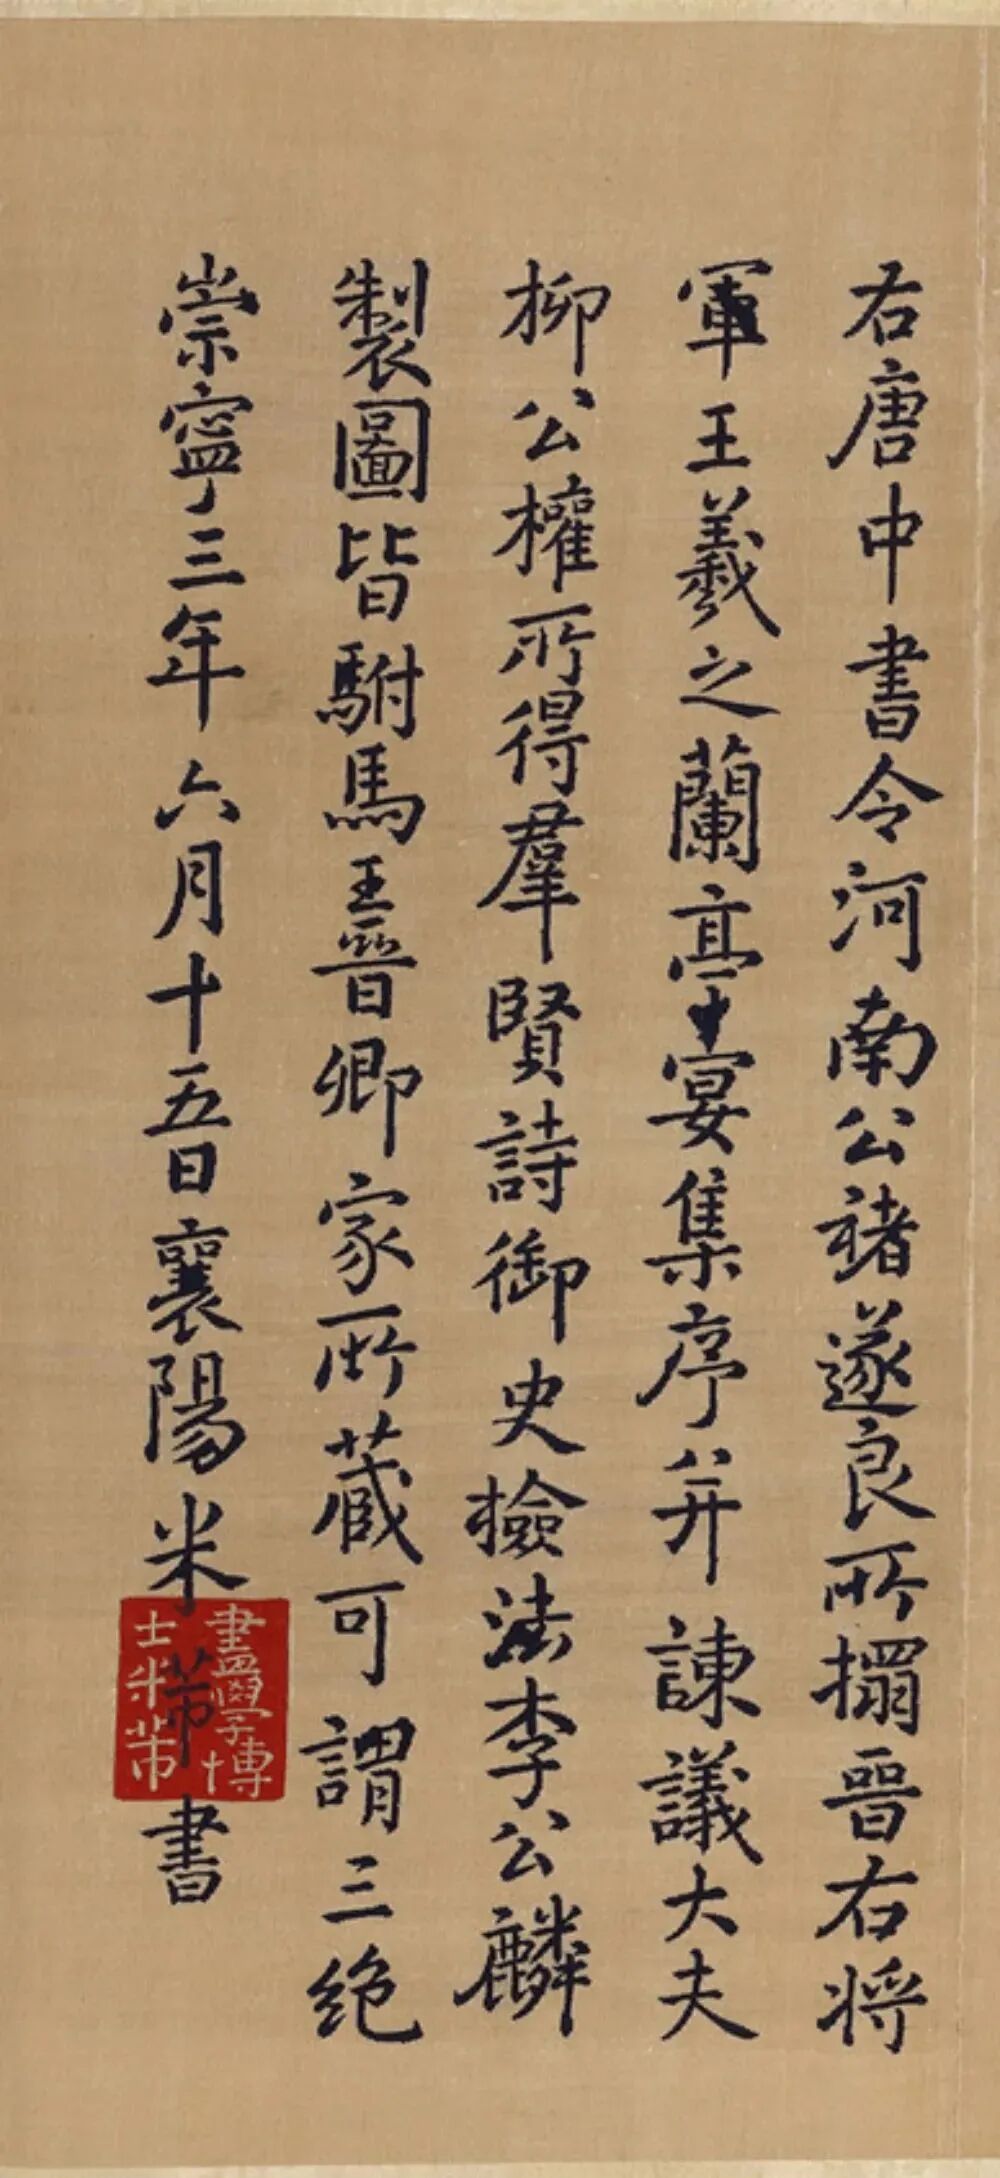 右唐中書令河南公褚遂良所搨晉右將
軍王羲之蘭亭宴集序并諫議大夫
柳公權所得羣賢詩御史檢法李公麟
製圖皆駙馬王晉卿家所藏可謂三絶
崇寧三年六月十五日襄陽米芾書
書學博
士米芾